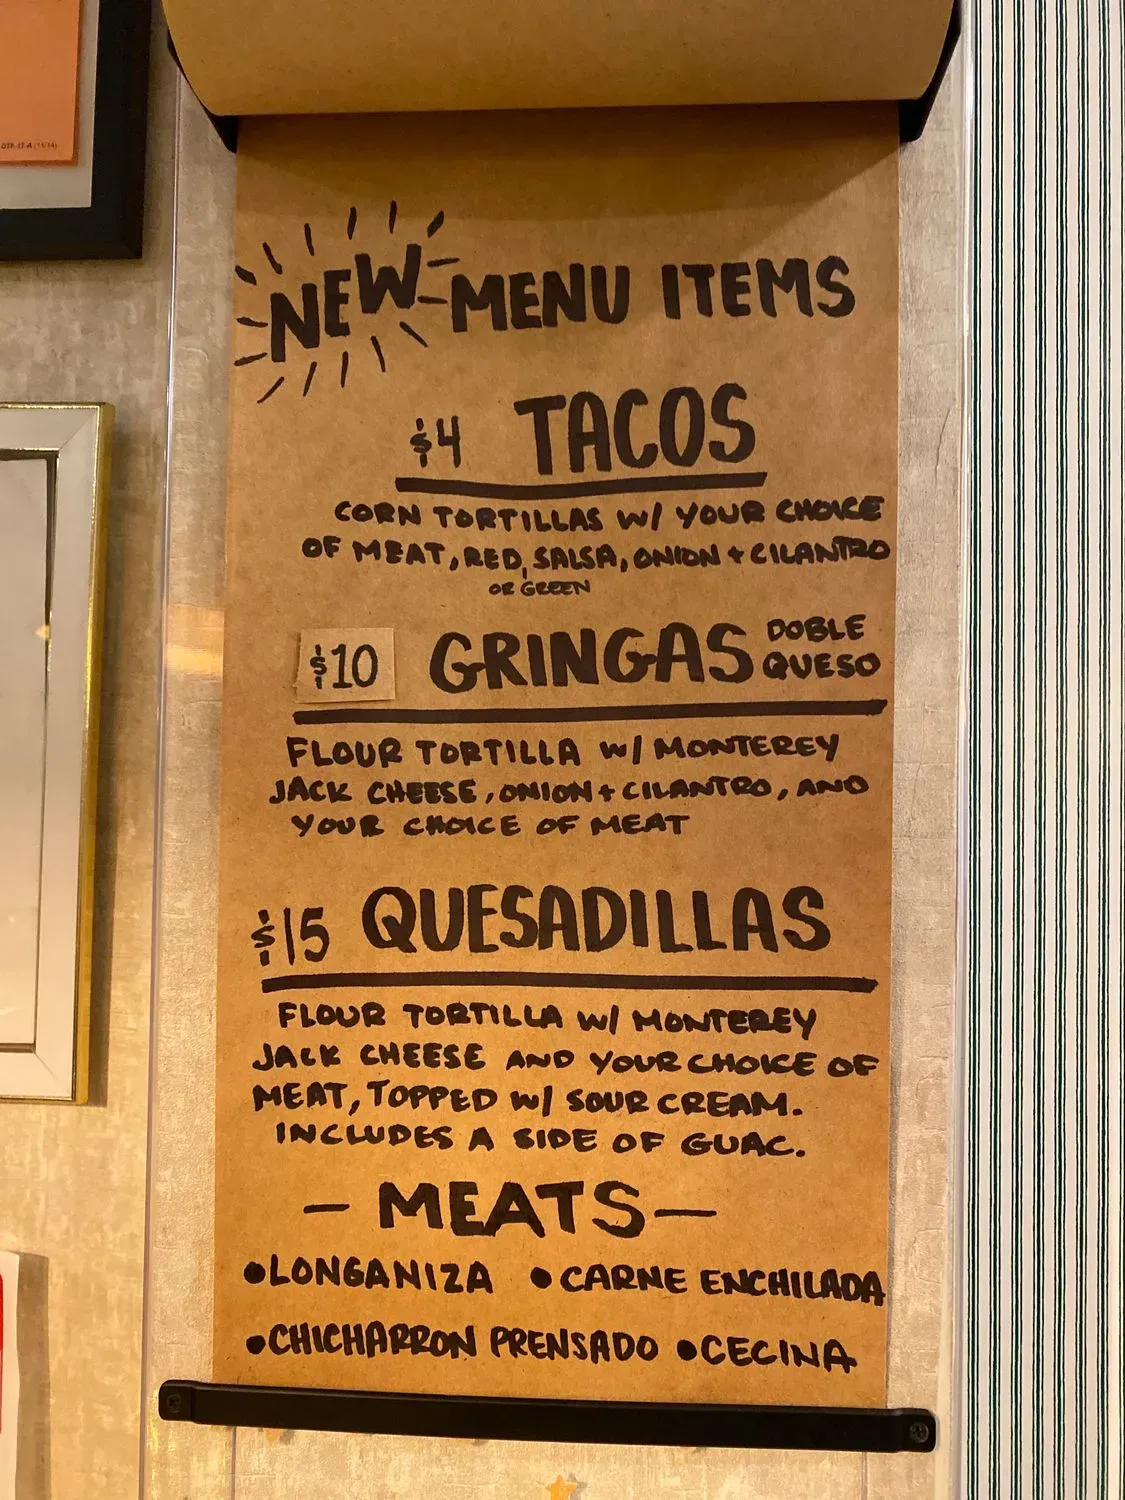 OTP-17-A (11/14)
NEW MENU ITEMS
$4 TACOS
CORN TORTILLAS W/ YOUR CHOICE
OF MEAT, RED, SALSA, ONION + CILANTRO
OR GREEN
$10 GRINGAS DOBLE
QUESO
FLOUR TORTILLA W/ MONTEREY
JACK CHEESE, ONION + CILANTRO, AND
YOUR CHOICE OF MEAT
$15 QUESADILLAS
FLOUR TORTILLA W/ MONTEREY
JACK CHEESE AND YOUR CHOICE OF
MEAT, TOPPED W/ SOUR CREAM.
INCLUDES A SIDE OF GUAC.
— MEATS —
•LONGANIZA •CARNE ENCHILADA
•CHICHARRON PRENSADO •CECINA